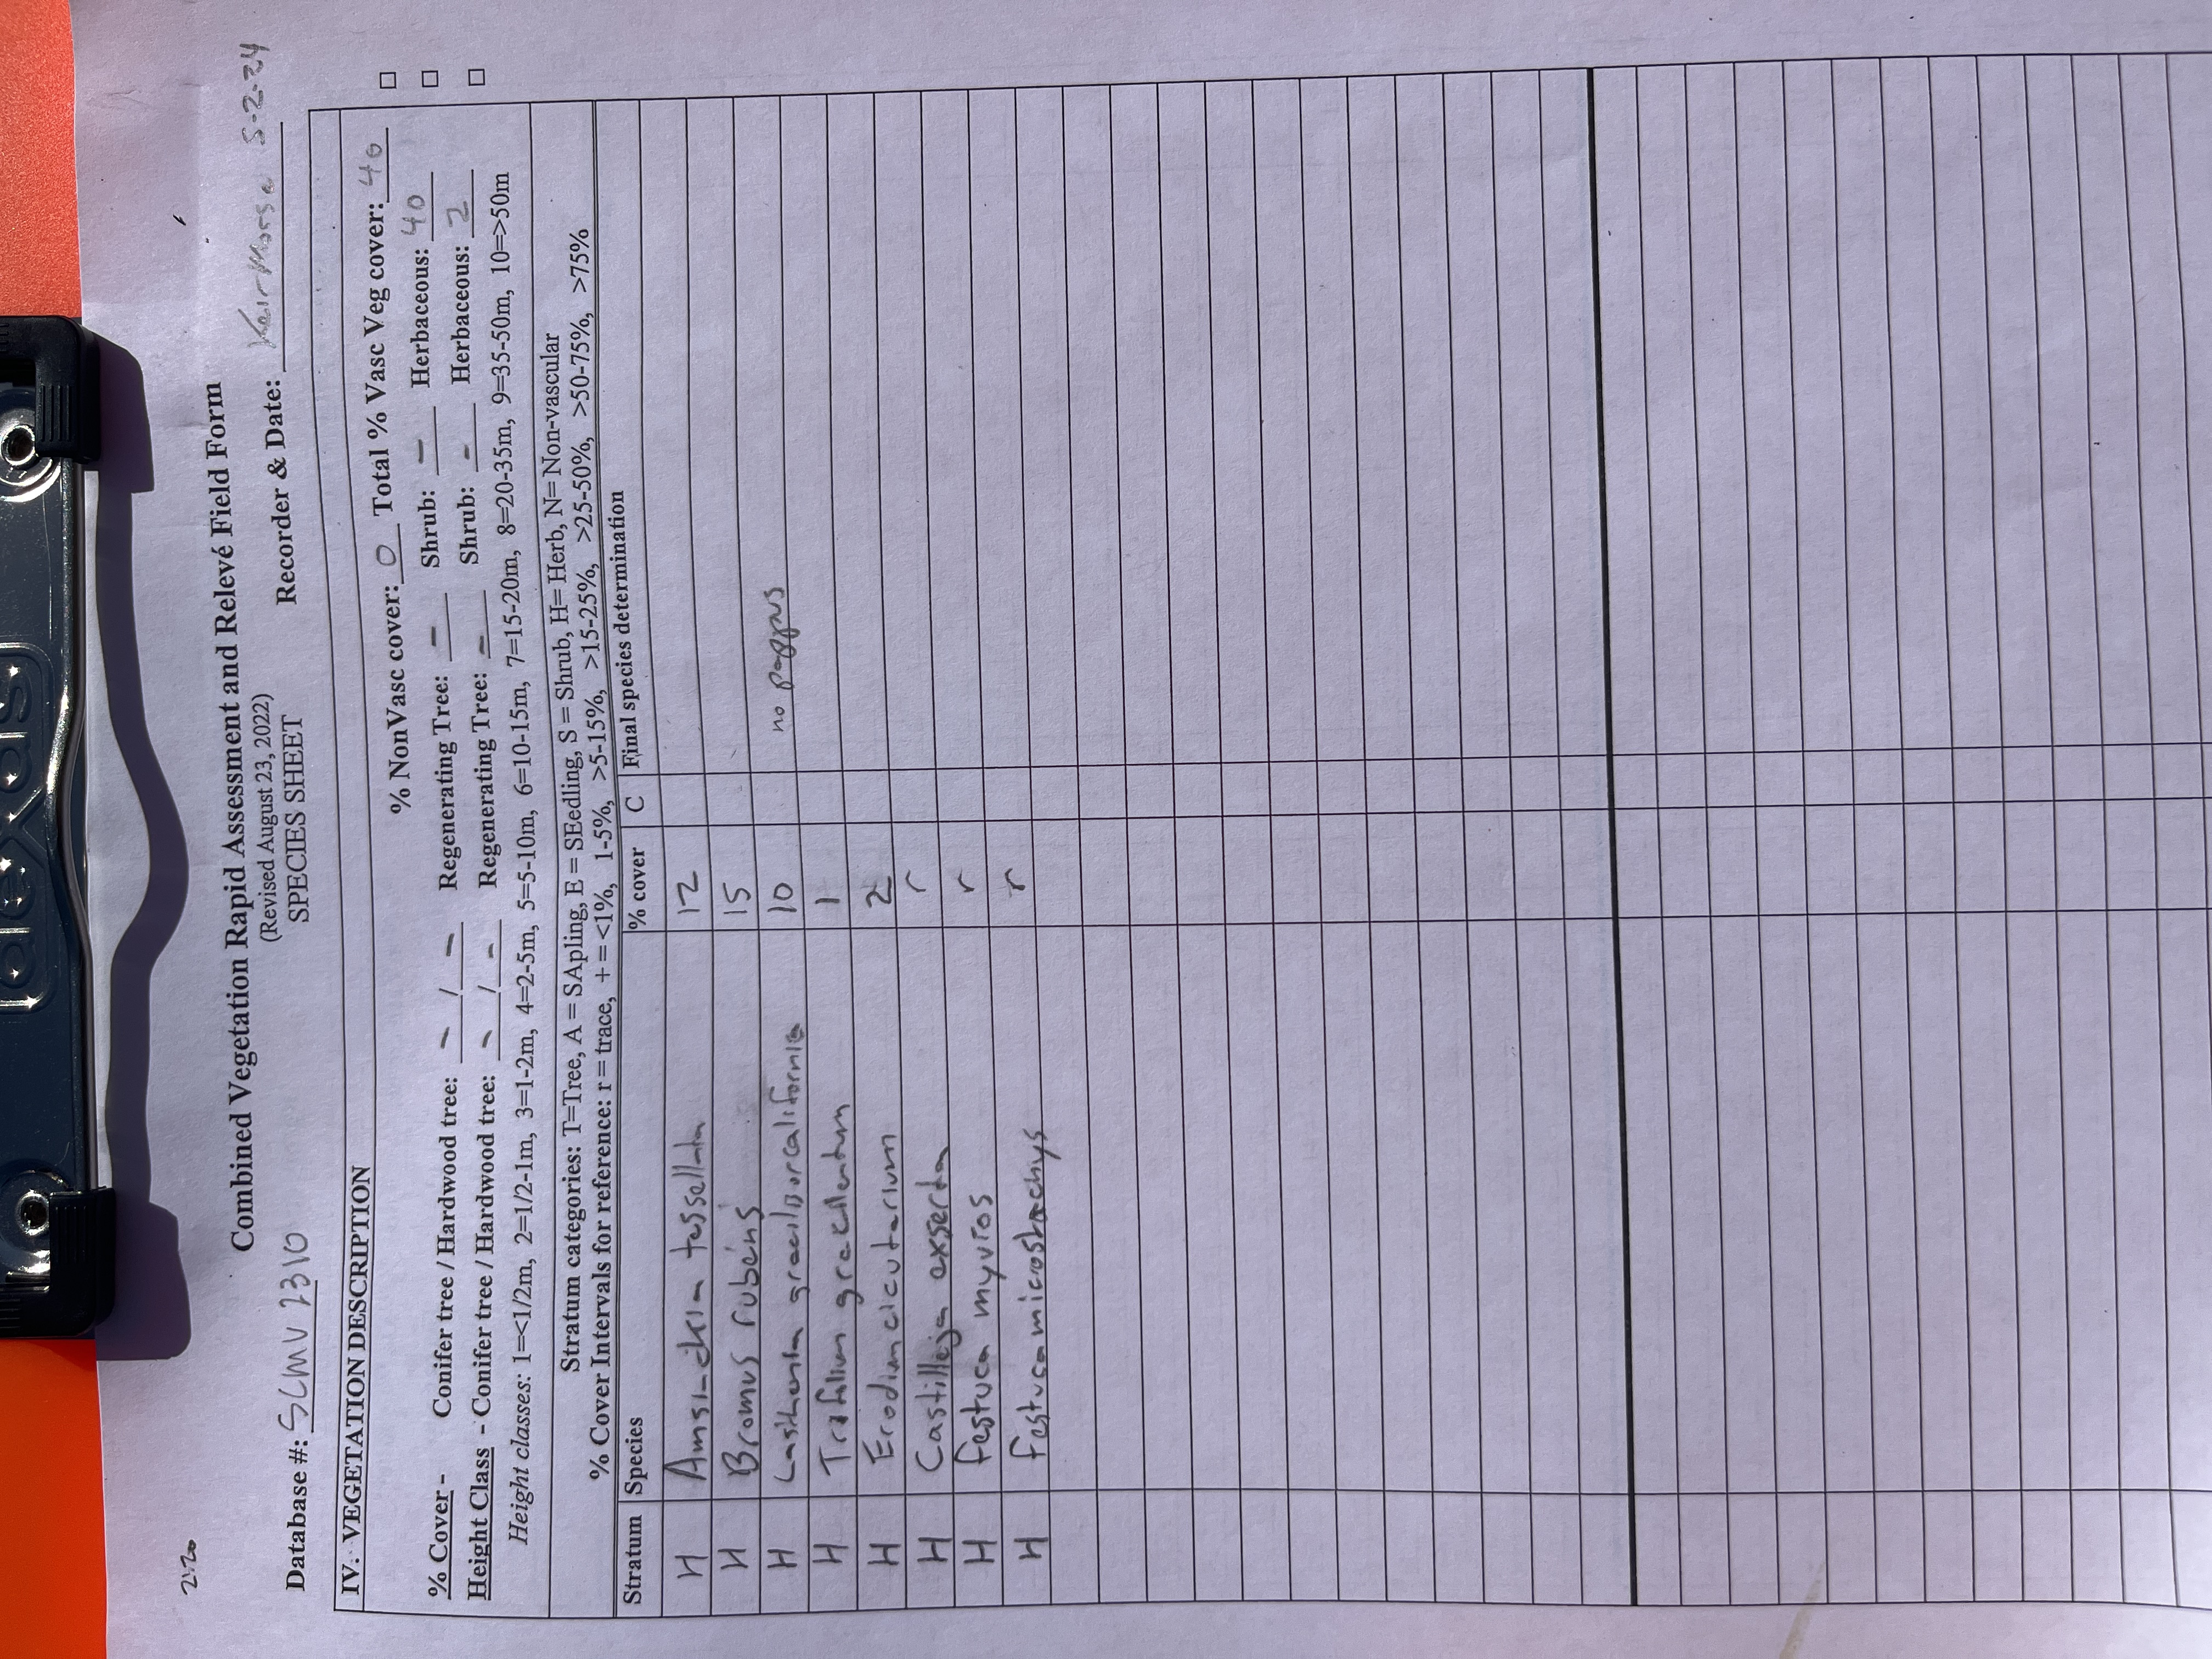 2:20
Combined Vegetation Rapid Assessment and Relevé Field Form
(Revised August 23, 2022)
SPECIES SHEET
Database #: SCMV 2310 Recorder & Date: Keir Morse 5-2-24
IV. VEGETATION DESCRIPTION
% NonVasc cover: 0 Total % Vasc Veg cover: 40 □
% Cover - Conifer tree / Hardwood tree: - / - Regenerating Tree: - Shrub: - Herbaceous: 40 □
Height Class - Conifer tree / Hardwood tree: - / - Regenerating Tree: - Shrub: - Herbaceous: 2 □
Height classes: 1=<1/2m, 2=1/2-1m, 3=1-2m, 4=2-5m, 5=5-10m, 6=10-15m, 7=15-20m, 8=20-35m, 9=35-50m, 10=>50m
Stratum categories: T=Tree, A = SApling, E = SEedling, S = Shrub, H= Herb, N= Non-vascular
% Cover Intervals for reference: r = trace, + = <1%, 1-5%, >5-15%, >15-25%, >25-50%, >50-75%, >75%
Stratum Species % cover C Final species determination
H Amsinckia tessellata 12
H Bromus rubens 15
H Lasthenia gracilis or californica 10 no pappus
H Trifolium gracilentum 1
H Erodium cicutarium 2
H Castilleja exserta r
H Festuca myuros r
H Festuca microstachys r